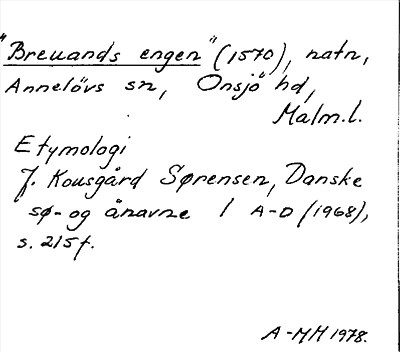 "Breuands engen" (1570), natn,
Annelövs sn, Onsjö hd,
Malm.l.
Etymologi
J. Kousgård Sørensen, Danske
sø- og ånavne 1 A-D (1968),
s. 215f.
A-MH 1978.